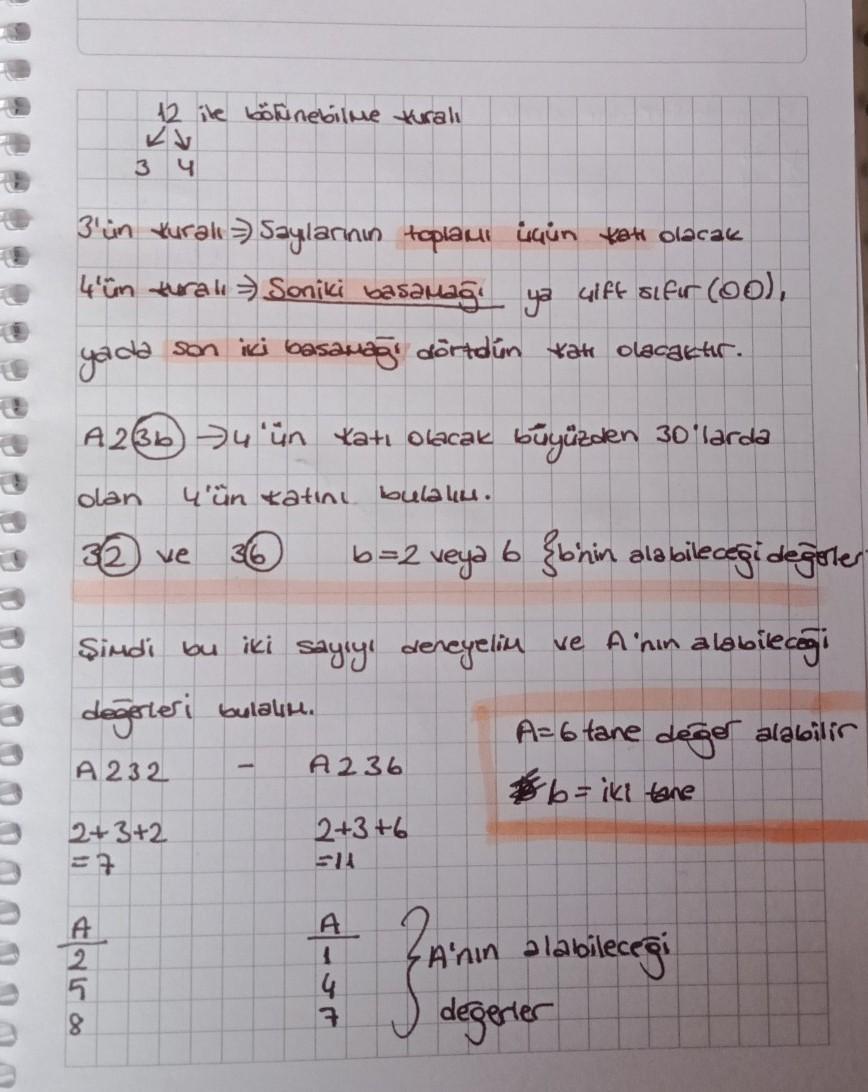 12 ile bölünebilme kuralı
3 4
3'ün kuralı ⇒ Saylarının toplamı üçün katı olacak
4'ün kuralı ⇒ Soniki basamağı ya çift sıfır (00),
yada son iki basamağı dörtdün katı olacaktır.
A23b → 4'ün katı olacak büyüzden 30'larda
olan 4'ün katını bulalım.
32 ve 36 b=2 veya 6 {b'nin alabileceği değerler
Şimdi bu iki sayıyı deneyelim ve A'nın alabileceği
değerleri bulalım.
A=6 tane değer alabilir
b = iki tane
A232 - A236
2+3+2 2+3+6
=7 =11
A A
2 1
5 4
8 7
} A'nın alabileceği
değerler